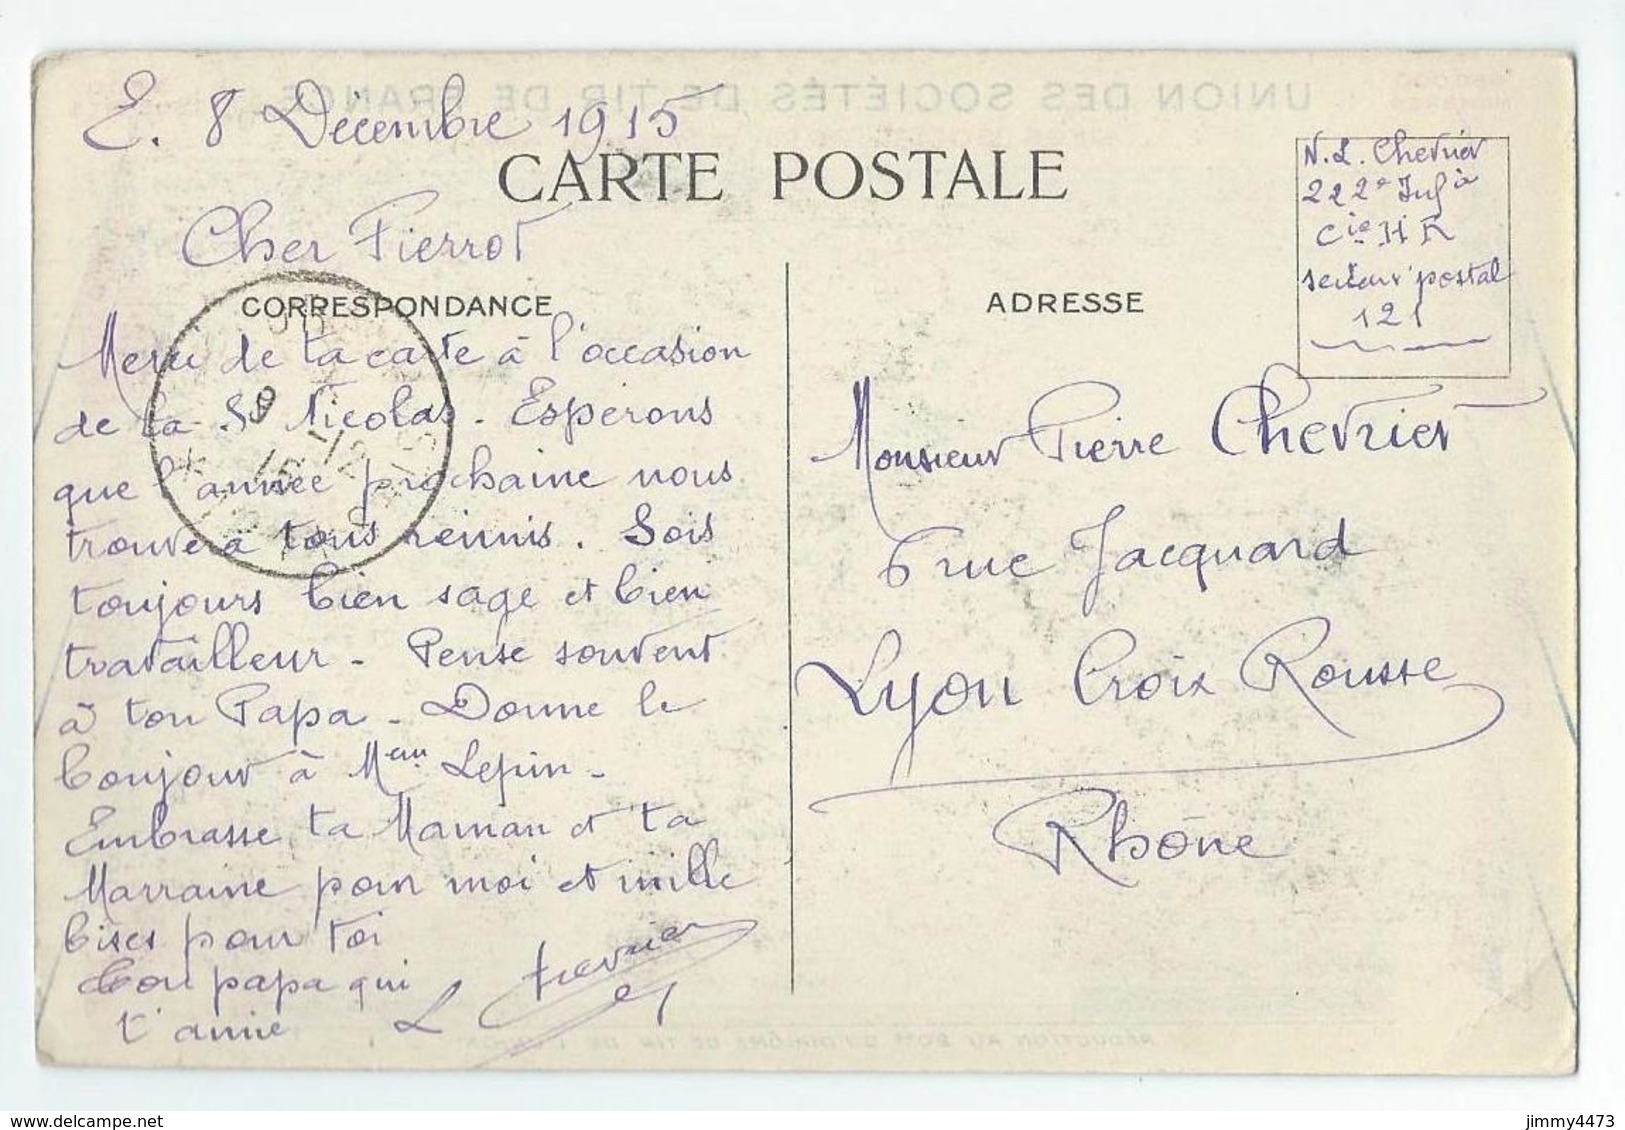 E. 8 Décembre 1915
CARTE POSTALE
Cher Pierrot
CORRESPONDANCE
Merci de ta carte à l'occasion
de la St Nicolas. Espérons
que l'année prochaine nous
trouvera tous réunis. Sois
toujours bien sage et bien
travailleur - Pense souvent
à ton Papa - Donne le
bonjour à Mem Lepin -
Embrasse ta Maman et ta
Marraine pour moi et mille
bises pour toi
ton papa qui
t'aime L Chevrier
9 -12
15
ADRESSE
N.L. Chevrier
222e Infie
Cie HR
secteur postal
121
Monsieur Pierre Chevrier
6 rue Jacquard
Lyon Croix Rousse
Rhône
UNION DES SOCIÉTÉS DE TIR DE FRANCE
RÉDUCTION AU DU DIPLÔME DE TIR DE L'UNION
delcampe.net
jimmy4473